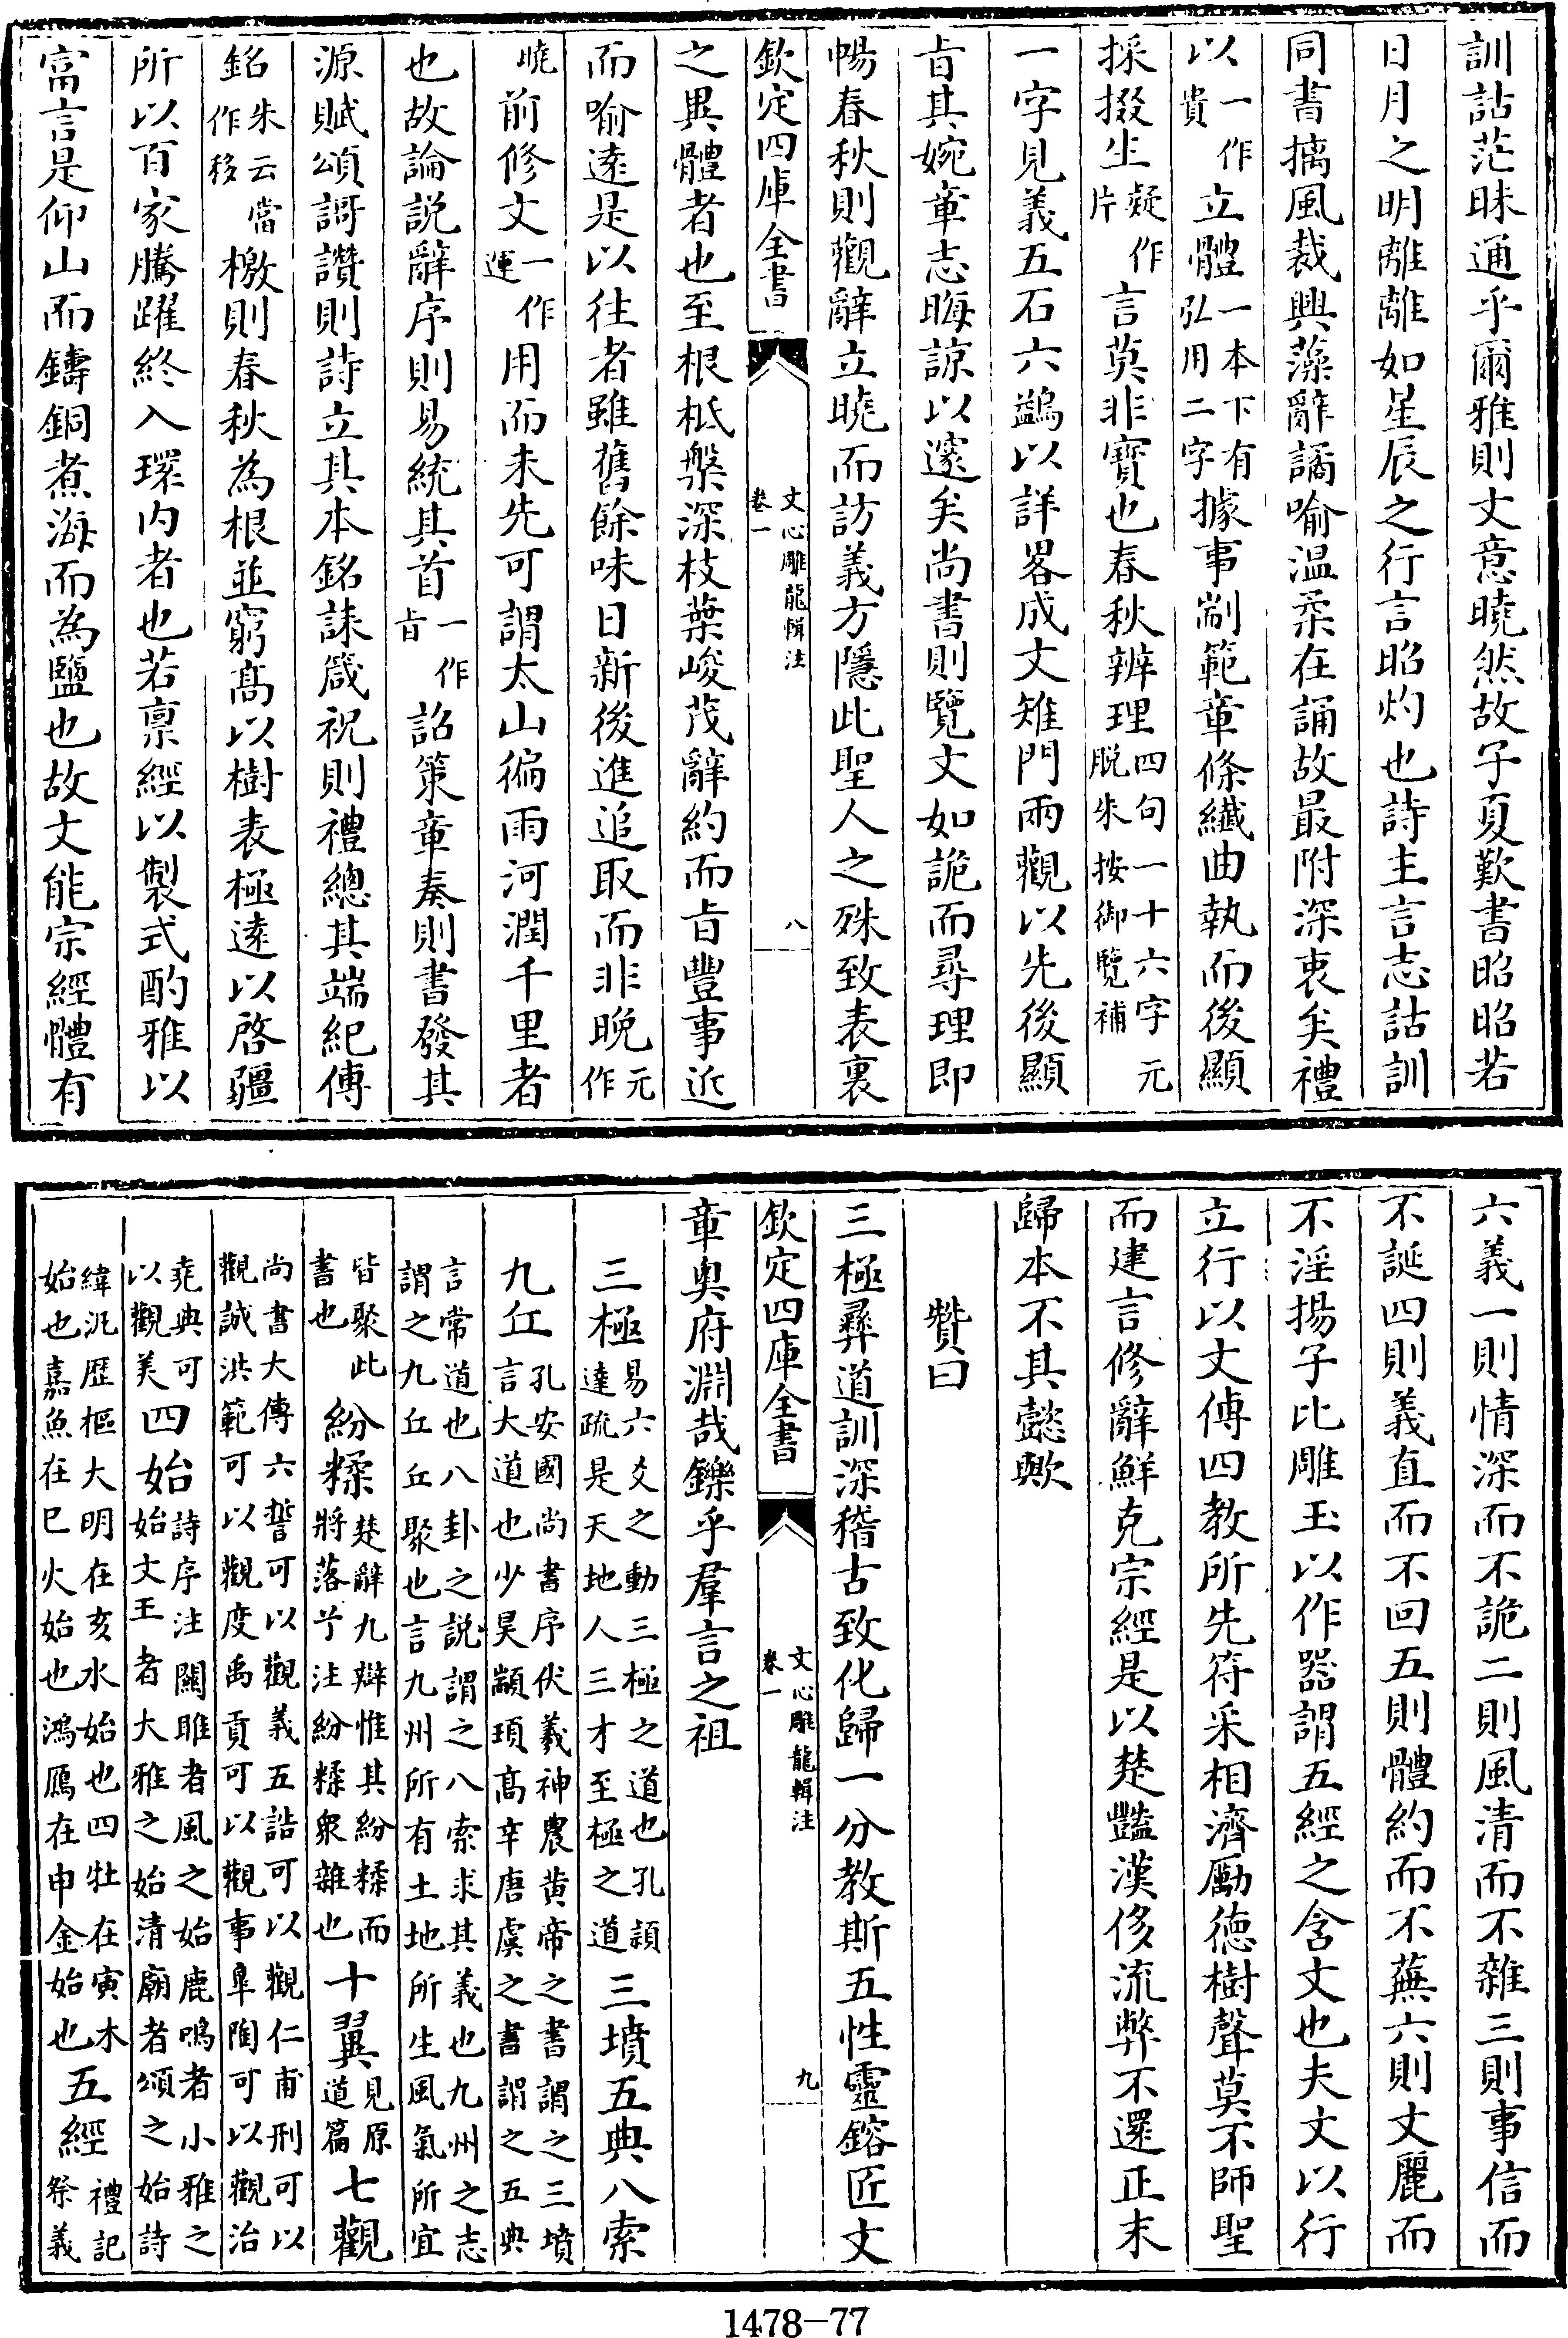 訓詁茫昧通乎爾雅則文意曉然故子夏歎書昭昭若
日月之明離離如星辰之行言昭灼也詩主言志詁訓
同書摛風裁興藻辭譎喻温柔在誦故最附深衷矣禮
以一作貴立體一本下有弘用二字據事剬範章條纖曲執而後顯
採掇生疑作片言莫非寶也春秋辨理四句一十六字元脱朱按御覽補
一字見義五石六鷁以詳畧成文雉門兩觀以先後顯
㫖其婉章志晦諒以邃矣尚書則覽文如詭而尋理即
暢春秋則觀辭立曉而訪義方隱此聖人之殊致表裏
欽定四庫全書 文心雕龍輯注 卷一 八
之異體者也至根柢槃深枝葉峻茂辭約而㫖豐事近
而喻遠是以往者雖舊餘味日新後進追取而非晚元作
曉前修文一作運用而未先可謂太山徧雨河潤千里者
也故論説辭序則易統其首一作㫖詔策章奏則書發其
源賦頌謌讚則詩立其本銘誄箴祝則禮總其端紀傳
銘朱云當作移檄則春秋為根並窮髙以樹表極遠以啓疆
所以百家騰躍終入環内者也若禀經以製式酌雅以
富言是仰山而鑄銅煮海而為鹽也故文能宗經體有
六義一則情深而不詭二則風清而不雜三則事信而
不誕四則義直而不回五則體約而不蕪六則文麗而
不淫揚子比雕玉以作器謂五經之含文也夫文以行
立行以文傳四教所先符采相濟勵徳樹聲莫不師聖
而建言修辭鮮克宗經是以楚豔漢侈流弊不還正末
歸本不其懿歟
贊曰
三極彞道訓深稽古致化歸一分教斯五性靈鎔匠文
欽定四庫全書 文心雕龍輯注 卷一 九
章奥府淵哉鑠乎羣言之祖
三極易六爻之動三極之道也孔穎達疏是天地人三才至極之道三墳五典八索
九丘孔安國尚書序伏羲神農黄帝之書謂之三墳言大道也少昊顓頊髙辛唐虞之書謂之五典
言常道也八卦之説謂之八索求其義也九州之志謂之九丘丘聚也言九州所有土地所生風氣所宜
皆聚此書也紛糅楚辭九辯惟其紛糅而將落兮注紛糅衆雜也十翼見原道篇七觀
尚書大傳六誓可以觀義五誥可以觀仁甫刑可以觀誠洪範可以觀度禹貢可以觀事皐陶可以觀治
堯典可以觀美四始詩序注關雎者風之始鹿鳴者小雅之始文王者大雅之始清廟者頌之始詩
緯汎歴樞大明在亥水始也四牡在寅木始也嘉魚在巳火始也鴻鴈在申金始也五經禮記祭義
1478—77